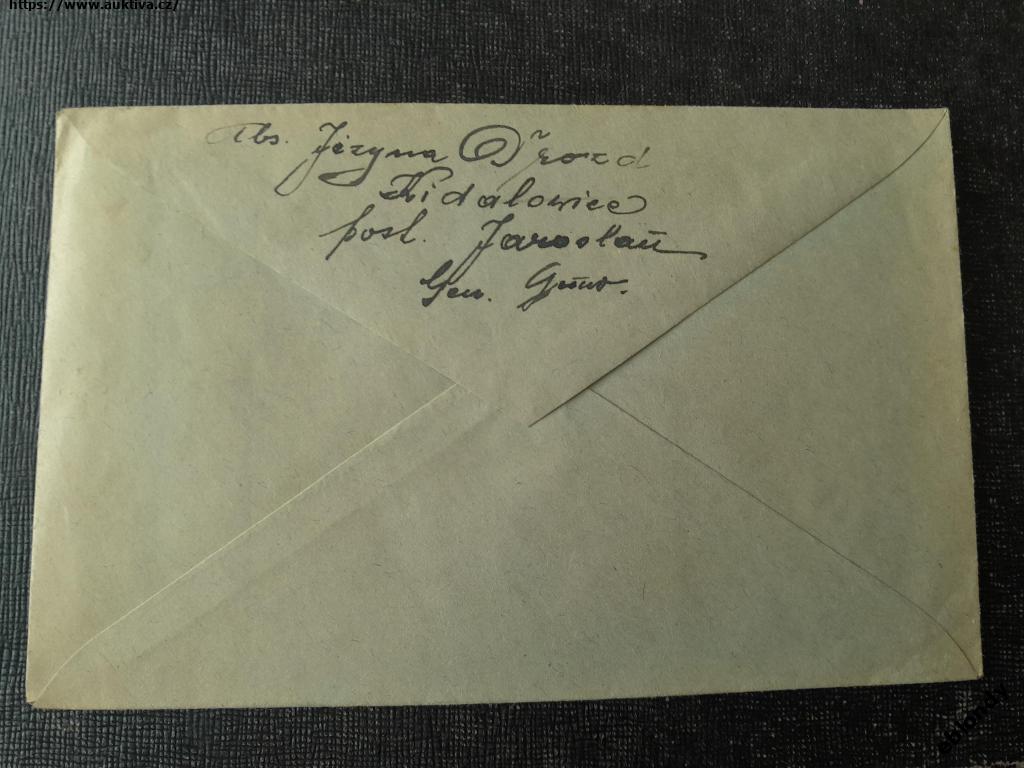 https://www.auktiva.cz/
Abs. Jeżyna Drozd
Kidalowice
post. Jaroslaŭ
Gen. Gouv.
eblondy